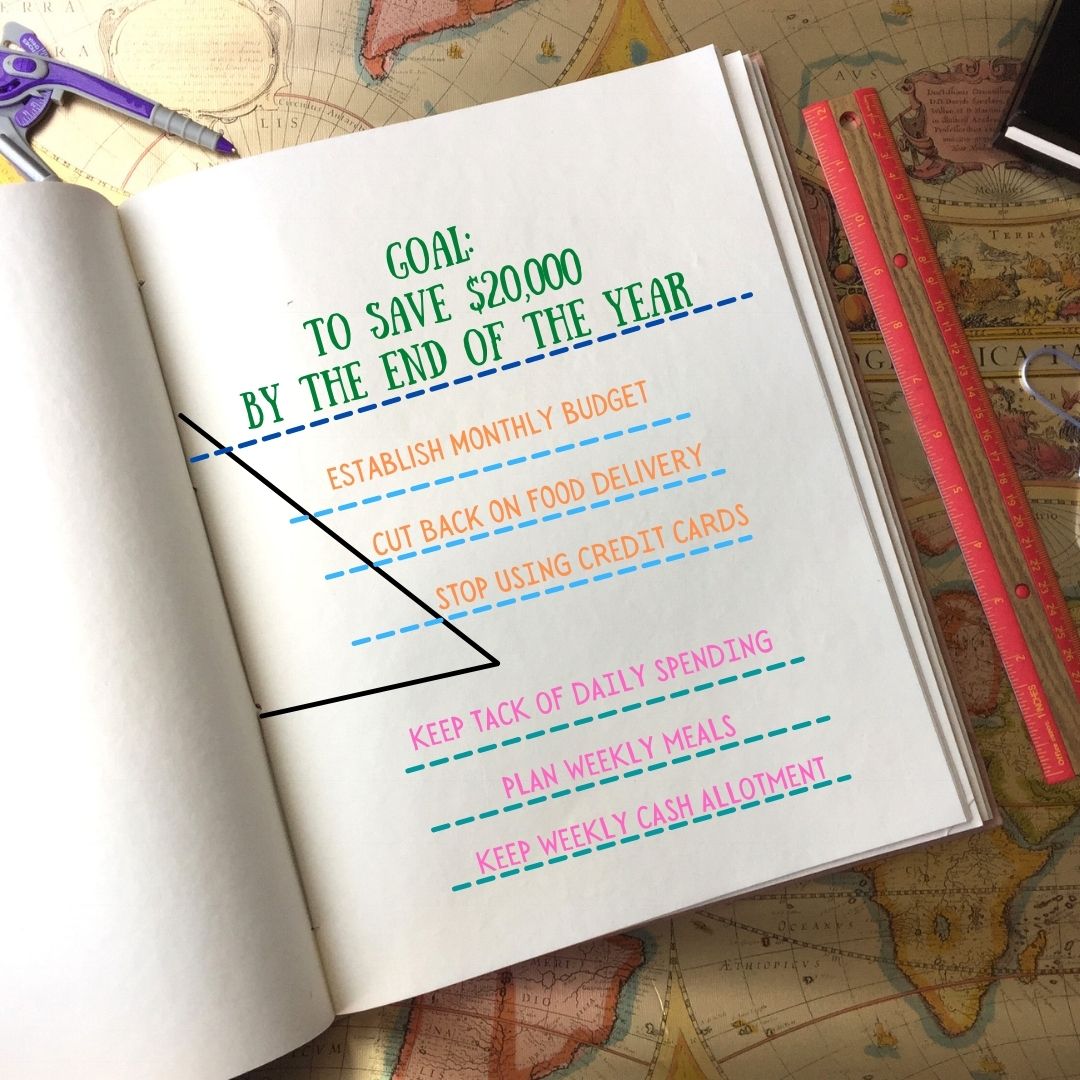 GOAL:
TO SAVE $20,000
BY THE END OF THE YEAR
ESTABLISH MONTHLY BUDGET
CUT BACK ON FOOD DELIVERY
STOP USING CREDIT CARDS
KEEP TACK OF DAILY SPENDING
PLAN WEEKLY MEALS
KEEP WEEKLY CASH ALLOTMENT
LIS
AVS
TERRA
INCHES
OCEANVS
ÆTHIOPICVS